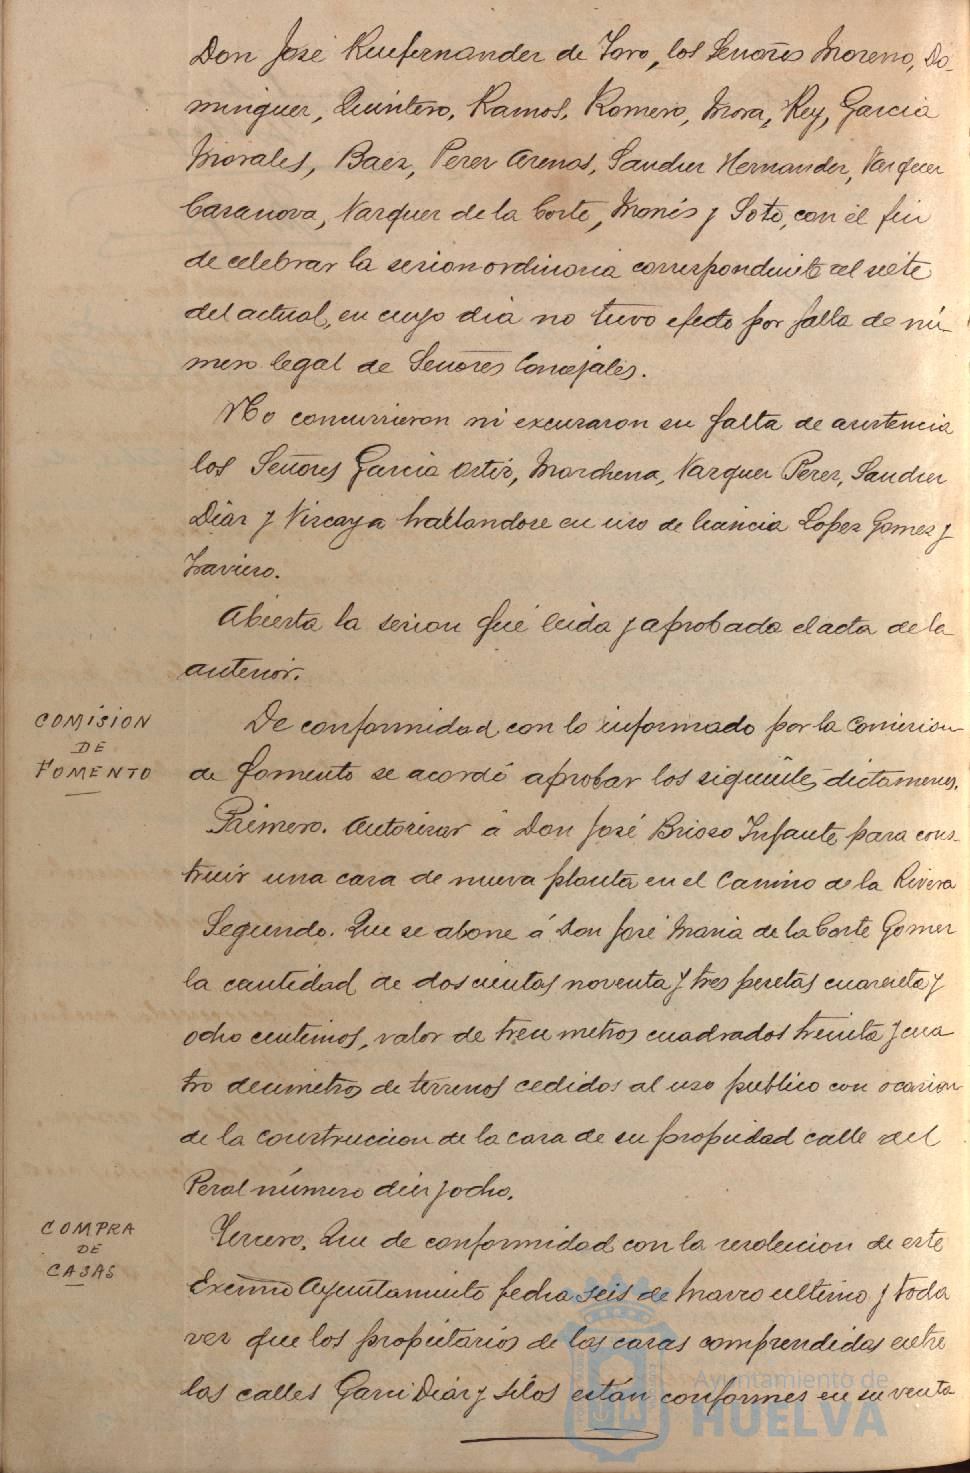 Don José Ruifernandez de Toro, los Señores Moreno, Do-
minguez, Quintero, Ramos, Romero, Mora, Rey, Garcia
Morales, Baez, Perez Arenas, Sanchez Hernandez, Vazquez
Casanova, Vazquez de la Corte, Monís y Soto, con el fin
de celebrar la sesion ordinaria correspondiente al siete
del actual, en cuyo dia no tuvo efecto por falta de nú-
mero legal de Señores Concejales.
No concurrieron ni excusaron su falta de asistencia
los Señores Garcia Ortiz, Marchena, Vazquez Perez, Sanchez
Diaz y Vizcaya hallandose en uso de licencia Lopez Gomez y
Traviero.
Abierta la sesion fué leida y aprobada el acta de la
anterior.
COMISION
DE
FOMENTO
De conformidad con lo informado por la Comision
de fomento se acordó aprobar los siguientes dictamenes.
Primero. Autorizar á Don José Brioso Infante para cons-
truir una casa de nueva planta en el Camino de la Rivera
Segundo. Que se abone á Don José Maria de la Corte Gomez
la cantidad de doscientas noventa y tres pesetas cuarenta y
ocho centimos, valor de trece metros cuadrados treinta y cua
tro decimetros de terrenos cedidos al uso publico con ocasion
de la construccion de la casa de su propiedad calle del
Peral número diez y ocho.
COMPRA
DE
CASAS
Tercero. Que de conformidad con la resolucion de este
Excmo Ayuntamiento fecha seis de Marzo ultimo y toda
vez que los propietarios de las casas comprendidas entre
las calles Garci Diaz y Silos están conformes en su venta
Ayuntamiento de
HUELVA